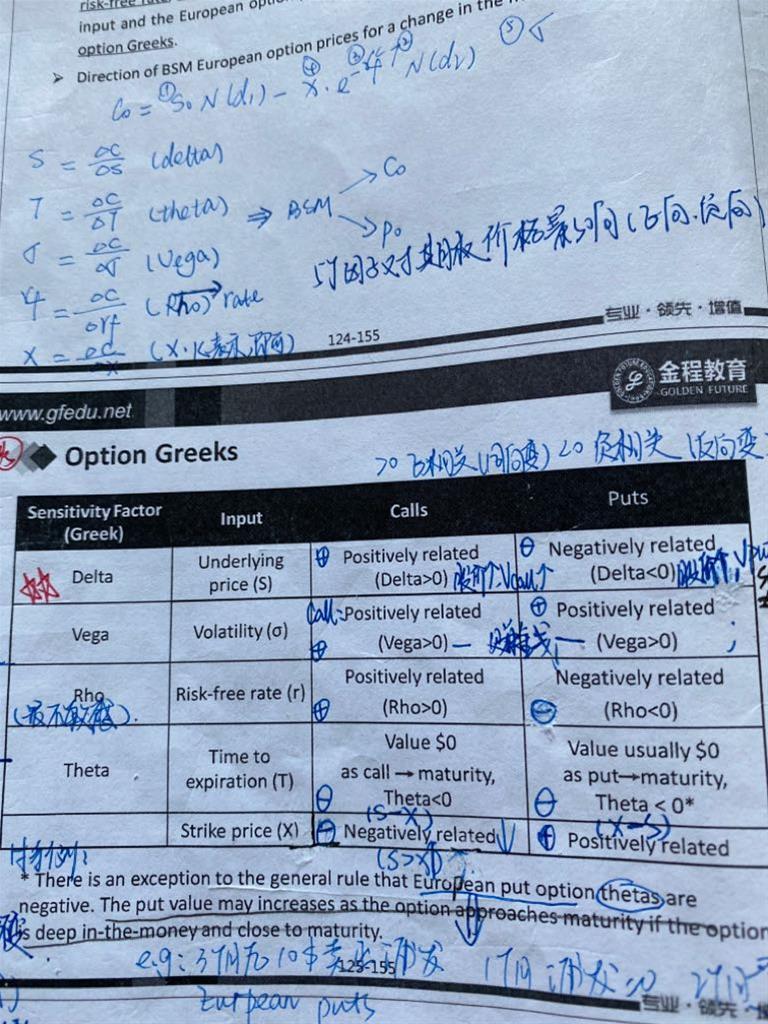 risk-free
input and the European
option Greeks.
➢ Direction of BSM European option prices for a change in the
C₀ = ①S₀ N(d₁) - ④X · e^-③rf ②T N(d₂) ⑤σ
S = ΔC/ΔS (delta)
T = ΔC/ΔT (theta) ⇒ BSM → C₀
→ P₀
σ = ΔC/Δσ (Vega)
5个因子对期权价格影响(正向、负向)
rf = ΔC/Δrf (Rho) rate
X = (X、K表示即可)
专业·领先·增值
124-155
www.gfedu.net
金程教育
GOLDEN FUTURE
Option Greeks
>0 正相关(同向变) <0 负相关(反向变
Sensitivity Factor (Greek) Input Calls Puts
Delta Underlying price (S) ⊕ Positively related (Delta>0) 股价↑,Vcall↑ ⊖ Negatively related (Delta<0) 股价↑,
Vega Volatility (σ) Call: ⊕ Positively related (Vega>0) ⊕ Positively related (Vega>0)
Rho (最不敏感). Risk-free rate (r) ⊕ Positively related (Rho>0) ⊖ Negatively related (Rho<0)
Theta Time to expiration (T) Value $0 as call → maturity, ⊖ Theta<0 Value usually $0 as put→maturity, ⊖ Theta < 0*
(S-X) (X-S)
Strike price (X) ⊖ Negatively related↓ ⊕ Positively related
(S>X)
* There is an exception to the general rule that European put option thetas are
negative. The put value may increases as the option approaches maturity if the option
is deep in-the-money and close to maturity.
e.g: 3个月后
125-155
European puts
专业·领先·增